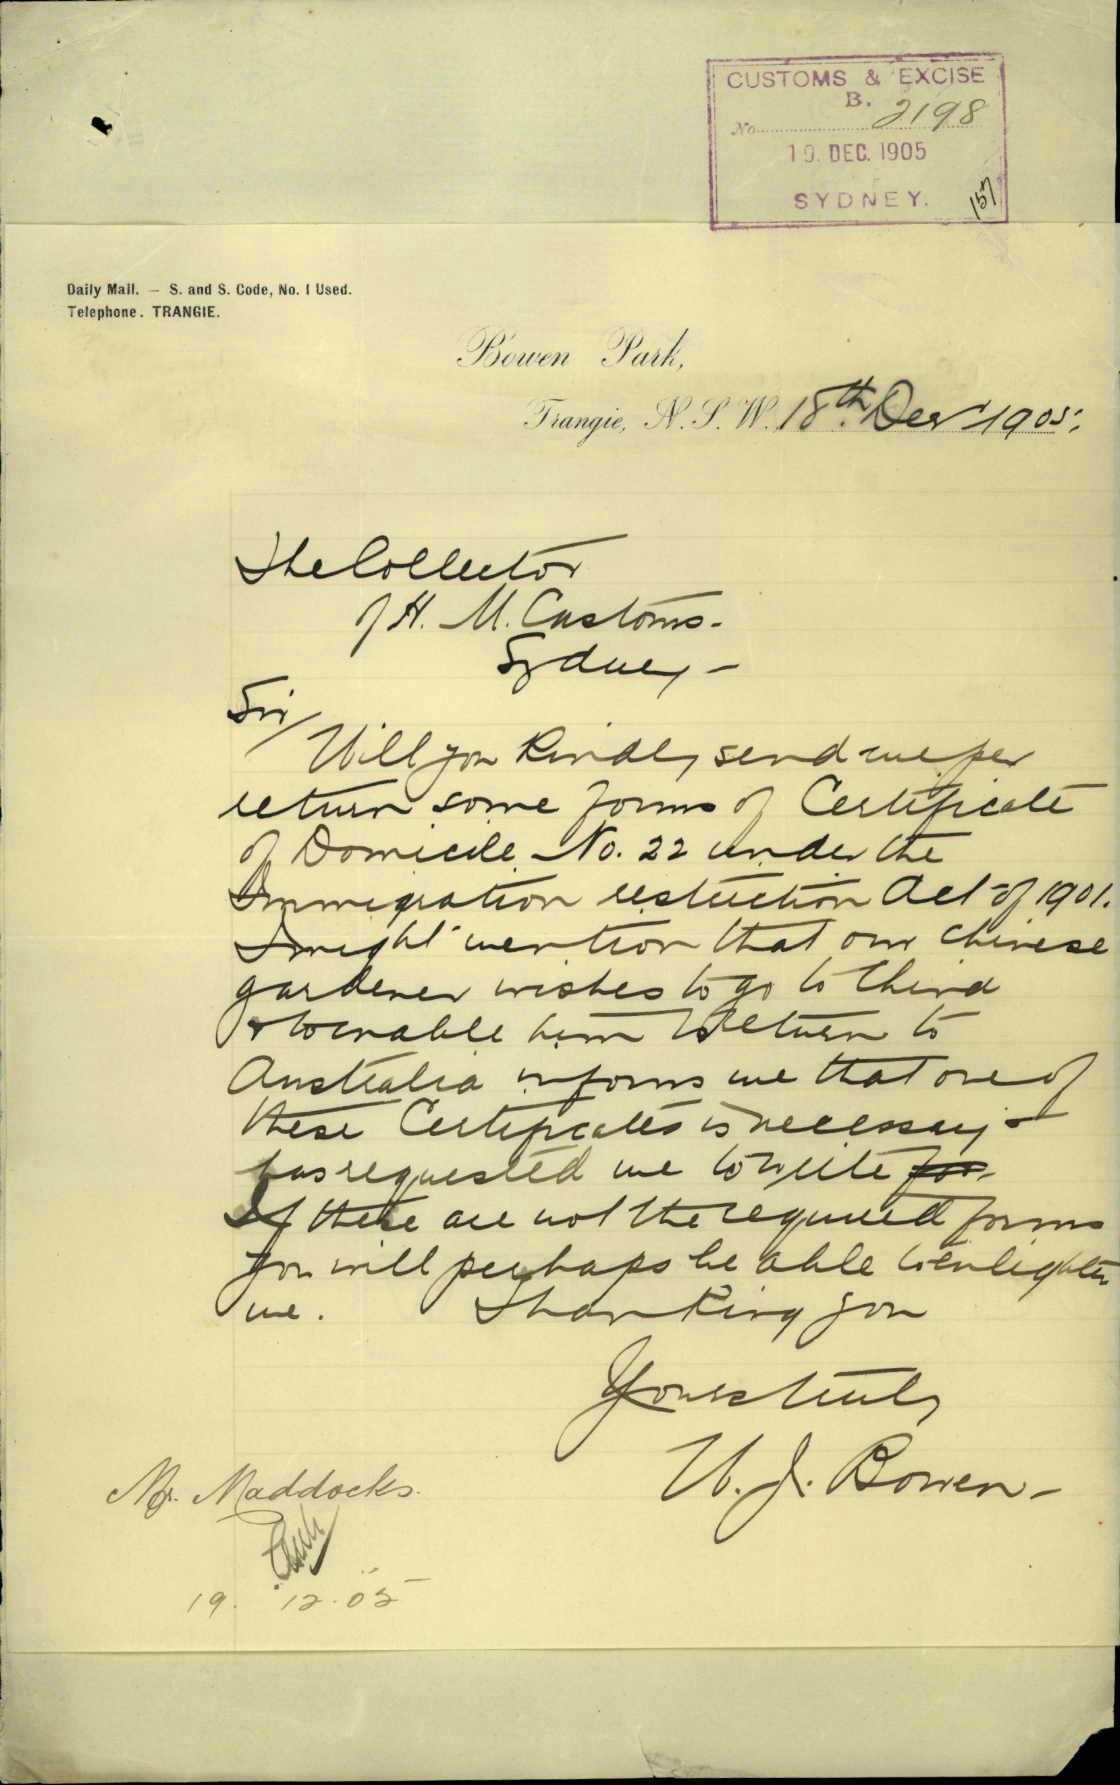 CUSTOMS & EXCISE
B.
No. 2198
19. DEC. 1905
SYDNEY.
157
Daily Mail. — S. and S. Code, No. 1 Used.
Telephone. TRANGIE.
Bowen Park,
Trangie, N.S.W. 18th Decr 1905.
The Collector
of H. M. Customs.
Sydney –
Sir/
Will you kindly send me per
return some forms of Certificate
of Domicile No. 22 under the
Immigration restriction Act of 1901.
I might mention that our Chinese
gardener wishes to go to China
& to enable him to return to
Australia informs me that one of
these Certificates is necessary &
has requested me to write for.
If these are not the required forms
you will perhaps be able to enlighten
me. Thanking you
Yours truly
W. J. Bowen –
Mr. Maddocks.
19. 12. 05